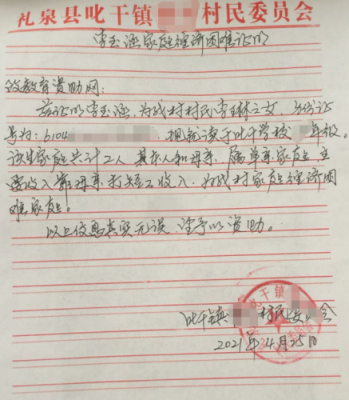 礼泉县叱干镇 村民委员会
李玉涵家庭经济困难证明
致教育资助网:
兹证明李玉涵,为我村村民李 林之女,身份证
号为:6104 ,现就读于叱干学校 年级。
该生家庭共计2人 其本人和母亲,属单亲家庭,主
要收入靠母亲打短工收入,为我村家庭经济困
难家庭。
以上信息真实无误 望予以资助。
叱干镇 村民委 会
2021年4月25日